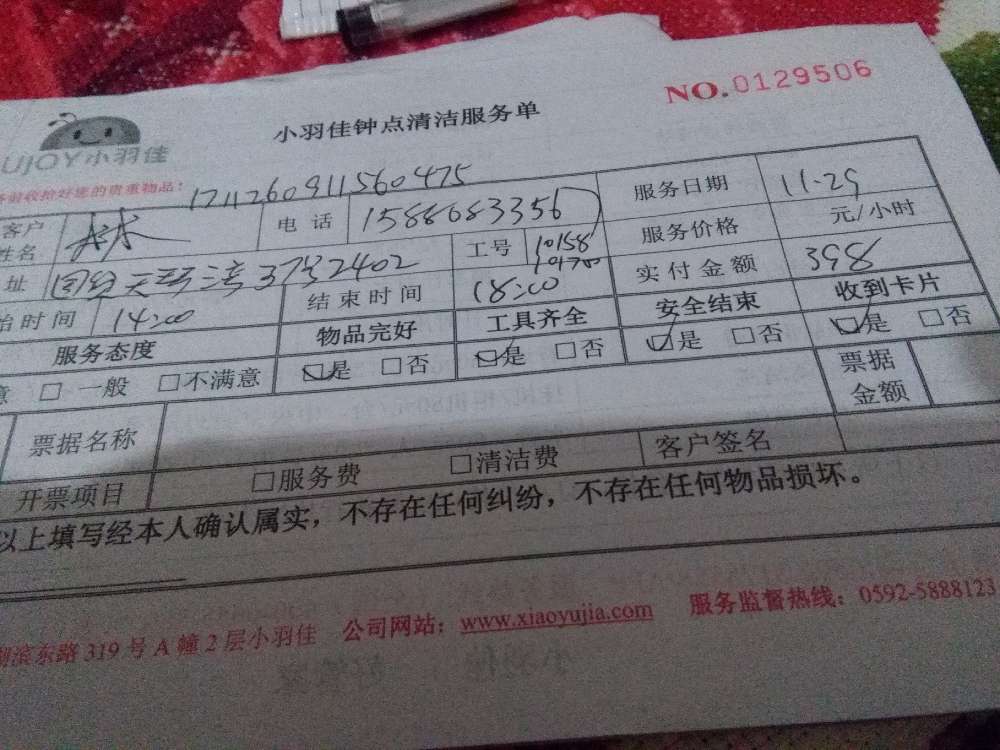 NO.0129506
小羽佳钟点清洁服务单
UJOY小羽佳
收拾好您的贵重物品：
171126091156047​5
客户姓名 电话 1588683356 服务日期 11.29
工号 10158 服务价格 元/小时
址 37号2402 结束时间 18:00 实付金额 398
始时间 14:00 物品完好 工具齐全 安全结束 收到卡片
服务态度 是 □否 是 □否 是 □否 是 □否
意 □ 一般 □不满意
票据名称 票据金额
开票项目 □服务费 □清洁费 客户签名
以上填写经本人确认属实，不存在任何纠纷，不存在任何物品损坏。
湖滨东路319号A幢2层小羽佳 公司网站：www.xiaoyujia.com 服务监督热线：0592-5888123